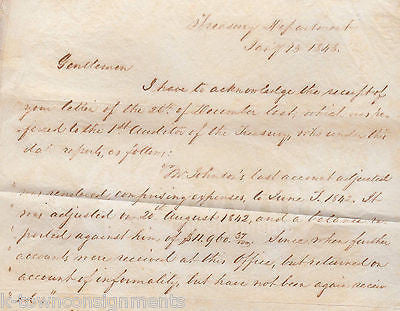 Treasury Department
Jany 13 1843.
Gentlemen
I have to acknowledge the receipt of
your letter of the 28th of December last, which was re-
ferred to the 1st Auditor of the Treasury, who under this
date reports, as follows:
"Mr Johnson's last account adjusted
was rendered comprising expenses, to June 5. 1842. It
was adjusted on 20 August 1842, and a balance re-
ported against him of $11,960.37/100. Since when further
accounts were received at this Office, but returned on
account of informality, but have not been again receiv
k-townconsignments